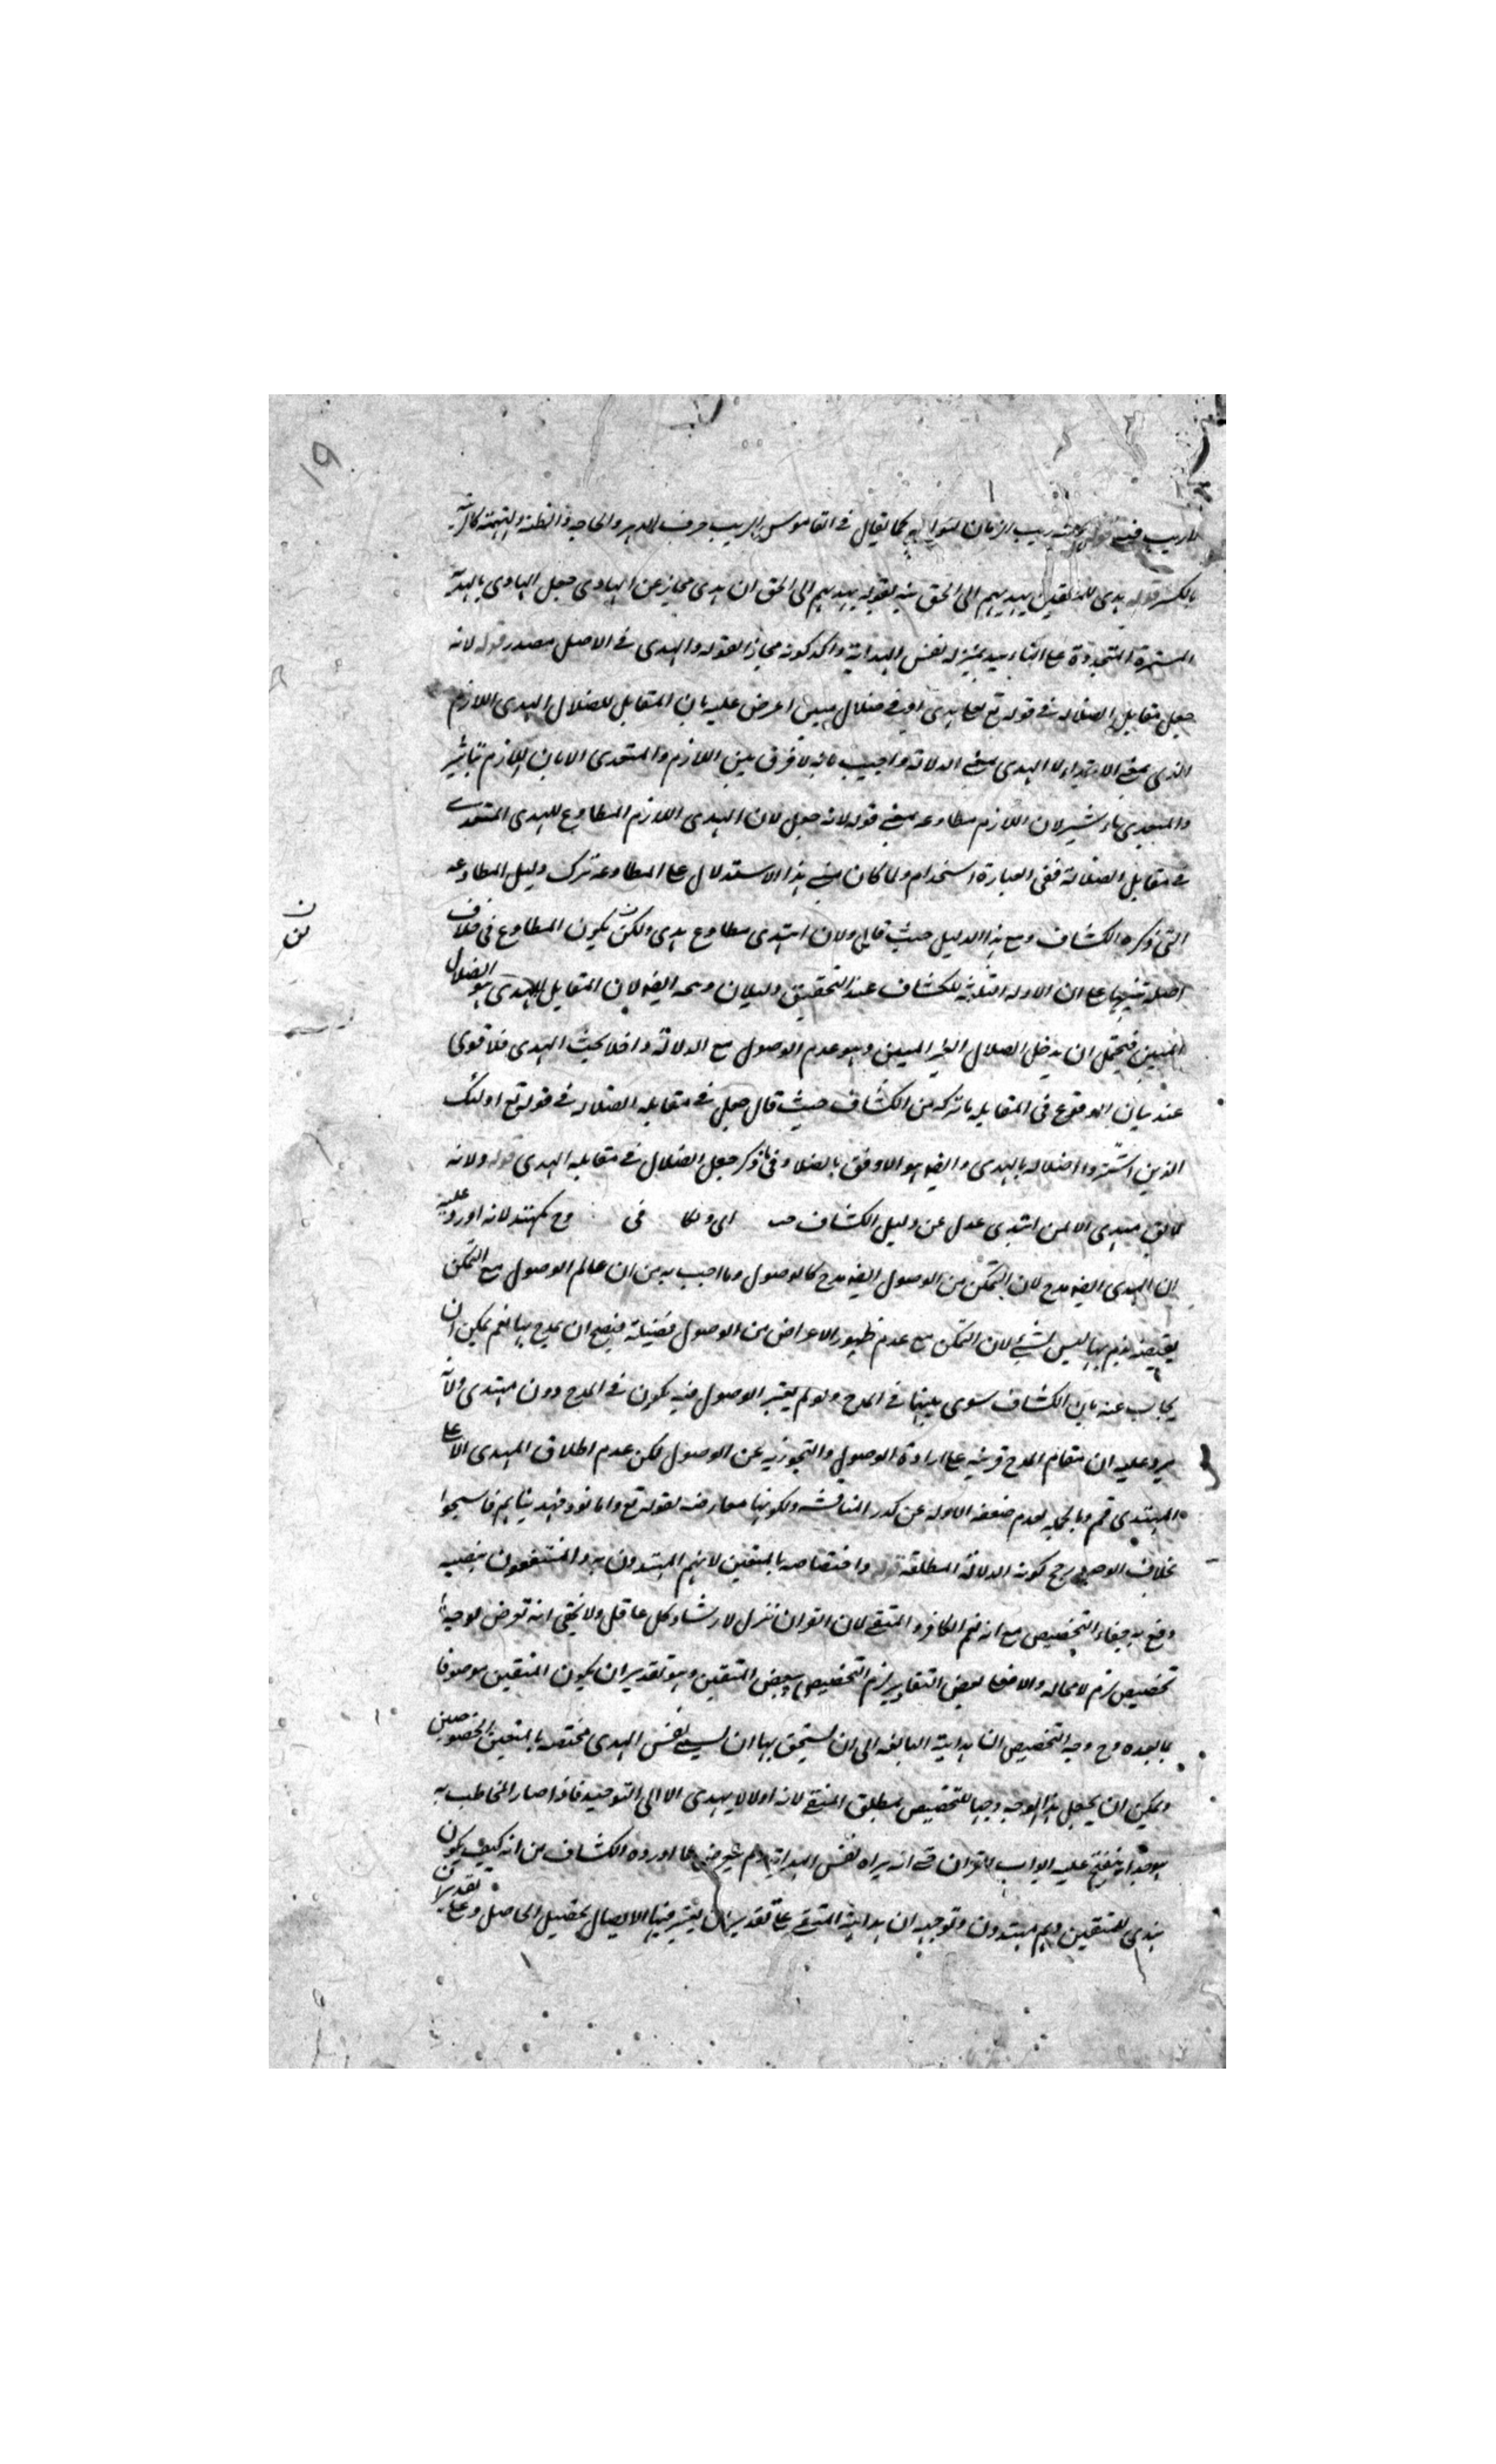 19
لاريب فيه ريب الزمان لنوائبه كما يقال في القاموس الريب صرف الدهر والحاجة والظنة والتهمة كالريبة
بالكسر قوله هدى للمتقين يهديهم الى الحق نبه بقوله يهديهم الى الحق ان هدى مجاز عن الهادى جعل الهادى بالهداية
المستمرة المتجددة بمنزلة نفس الهداية واكد كونه مجازا بقوله والهدى في الاصل مصدر قوله لانه
جعل مقابل الضلالة في قوله تع لعلى هدى او في ضلال مبين اعرض عليه بان المقابل للضلال الهدى اللازم
الذى بمعنى الاهتداء لا الهدى بمعنى الدلالة واجيب بانه لا فرق بين اللازم والمتعدى الا بان اللازم تأثر
والمتعدى تأثير لان اللازم مطاوعه فمعنى قوله لانه جعل لان الهدى اللازم المطاوع للهدى المتعدى
في مقابل الضلالة ففى العبارة استخدام ولما كان مبنى هذا الاستدلال على المطاوعة ترك دليل المطاوعة
التى ذكره الكشاف ومع هذا الدليل حيث قال ولان اهتدى مطاوع هدى ولكن يكون المطاوع فى خلاف
اصله تنبيها على ان الادلة الثلثة للكشاف عند التحقيق دليلان وسمه ايضا لان المقابل للهدى هو الضلال
المبين فيحتمل ان يدخل الضلال الغير المبين وهو عدم الوصول مع الدلالة داخلا تحت الهدى فلا قوى
عند بيان الوقوع فى المقابلة ما تركه من الكشاف حيث قال جعل في مقابلة الضلالة في قوله تع اولئك
الذين اشتروا الضلالة بالهدى وايضا هو الاوفق بالضلا وفى ما ذكر جعل الضلال في مقابلة الهدى قوله ولانه
لا يق مهدى الا لمن اهتدى عدل عن دليل الكشاف فى لانه اورد عليه
ان الهدى ايضا مدح لان التمكن من الوصول ايضا مدح كالوصول وما اجيب به من ان عالم الوصول مع التمكن
نقيصة يذم بها ليس بشئ لان التمكن مع عدم ظهور الاعراض من الوصول فضيلة فيصح ان يمدح بها نعم يمكن ان
يجاب عنه بان الكشاف سوى بينهما في المدح ولو لم يعتبر الوصول فيه يكون في المدح دون مهتدى ولانه
يرد عليه ان مقام المدح قرينة على ارادة الوصول والتجوز به عن الوصول لكن عدم اطلاق المهدى الا على
المهتدى وبالجملة لعدم ضعفه الادلة عن كدر المناقشة ولكونها معارضة لقوله تع واما ثمود فهديناهم فاستحبوا
بخلاف الوصول رجح كونه الدلالة المطلقة واختصاصه بالمتقين لانهم المهتدون به والمنتفعون بنصبه
دفع به خفاء التخصيص مع انه نعم الكافر والمتقى لان القران نزل لارشاد كل عاقل ولا يخفى انه تعرض لوجه
تخصيص لزم لا محالة والا فعلى بعض التقادير يلزم التخصيص ببعض المتقين وهو تقدير ان يكون المتقين موصوفا
بما بعده وح وجه التخصيص ان هداية البالغة الى ان يستحق بها ان يسمى نفس الهدى مختصة بالمتقين المخصوصين
ويمكن ان يجعل هذا الوجه وجها للتخصيص بمطلق المتقى لانه اولا لا يهدى الا الى التوحيد فاذا صار المخاطب به
موحدا ينفتح عليه ابواب القران حتى انه يراه نفس الهداية ولم يتعرض لما اورده الكشاف من انه كيف يكون
هدى للمتقين وهم مهتدون وتوجيهه ان هداية المتقى على تقدير ان يعتبر فيها الايصال تحصيل الحاصل وعلى تقدير ان